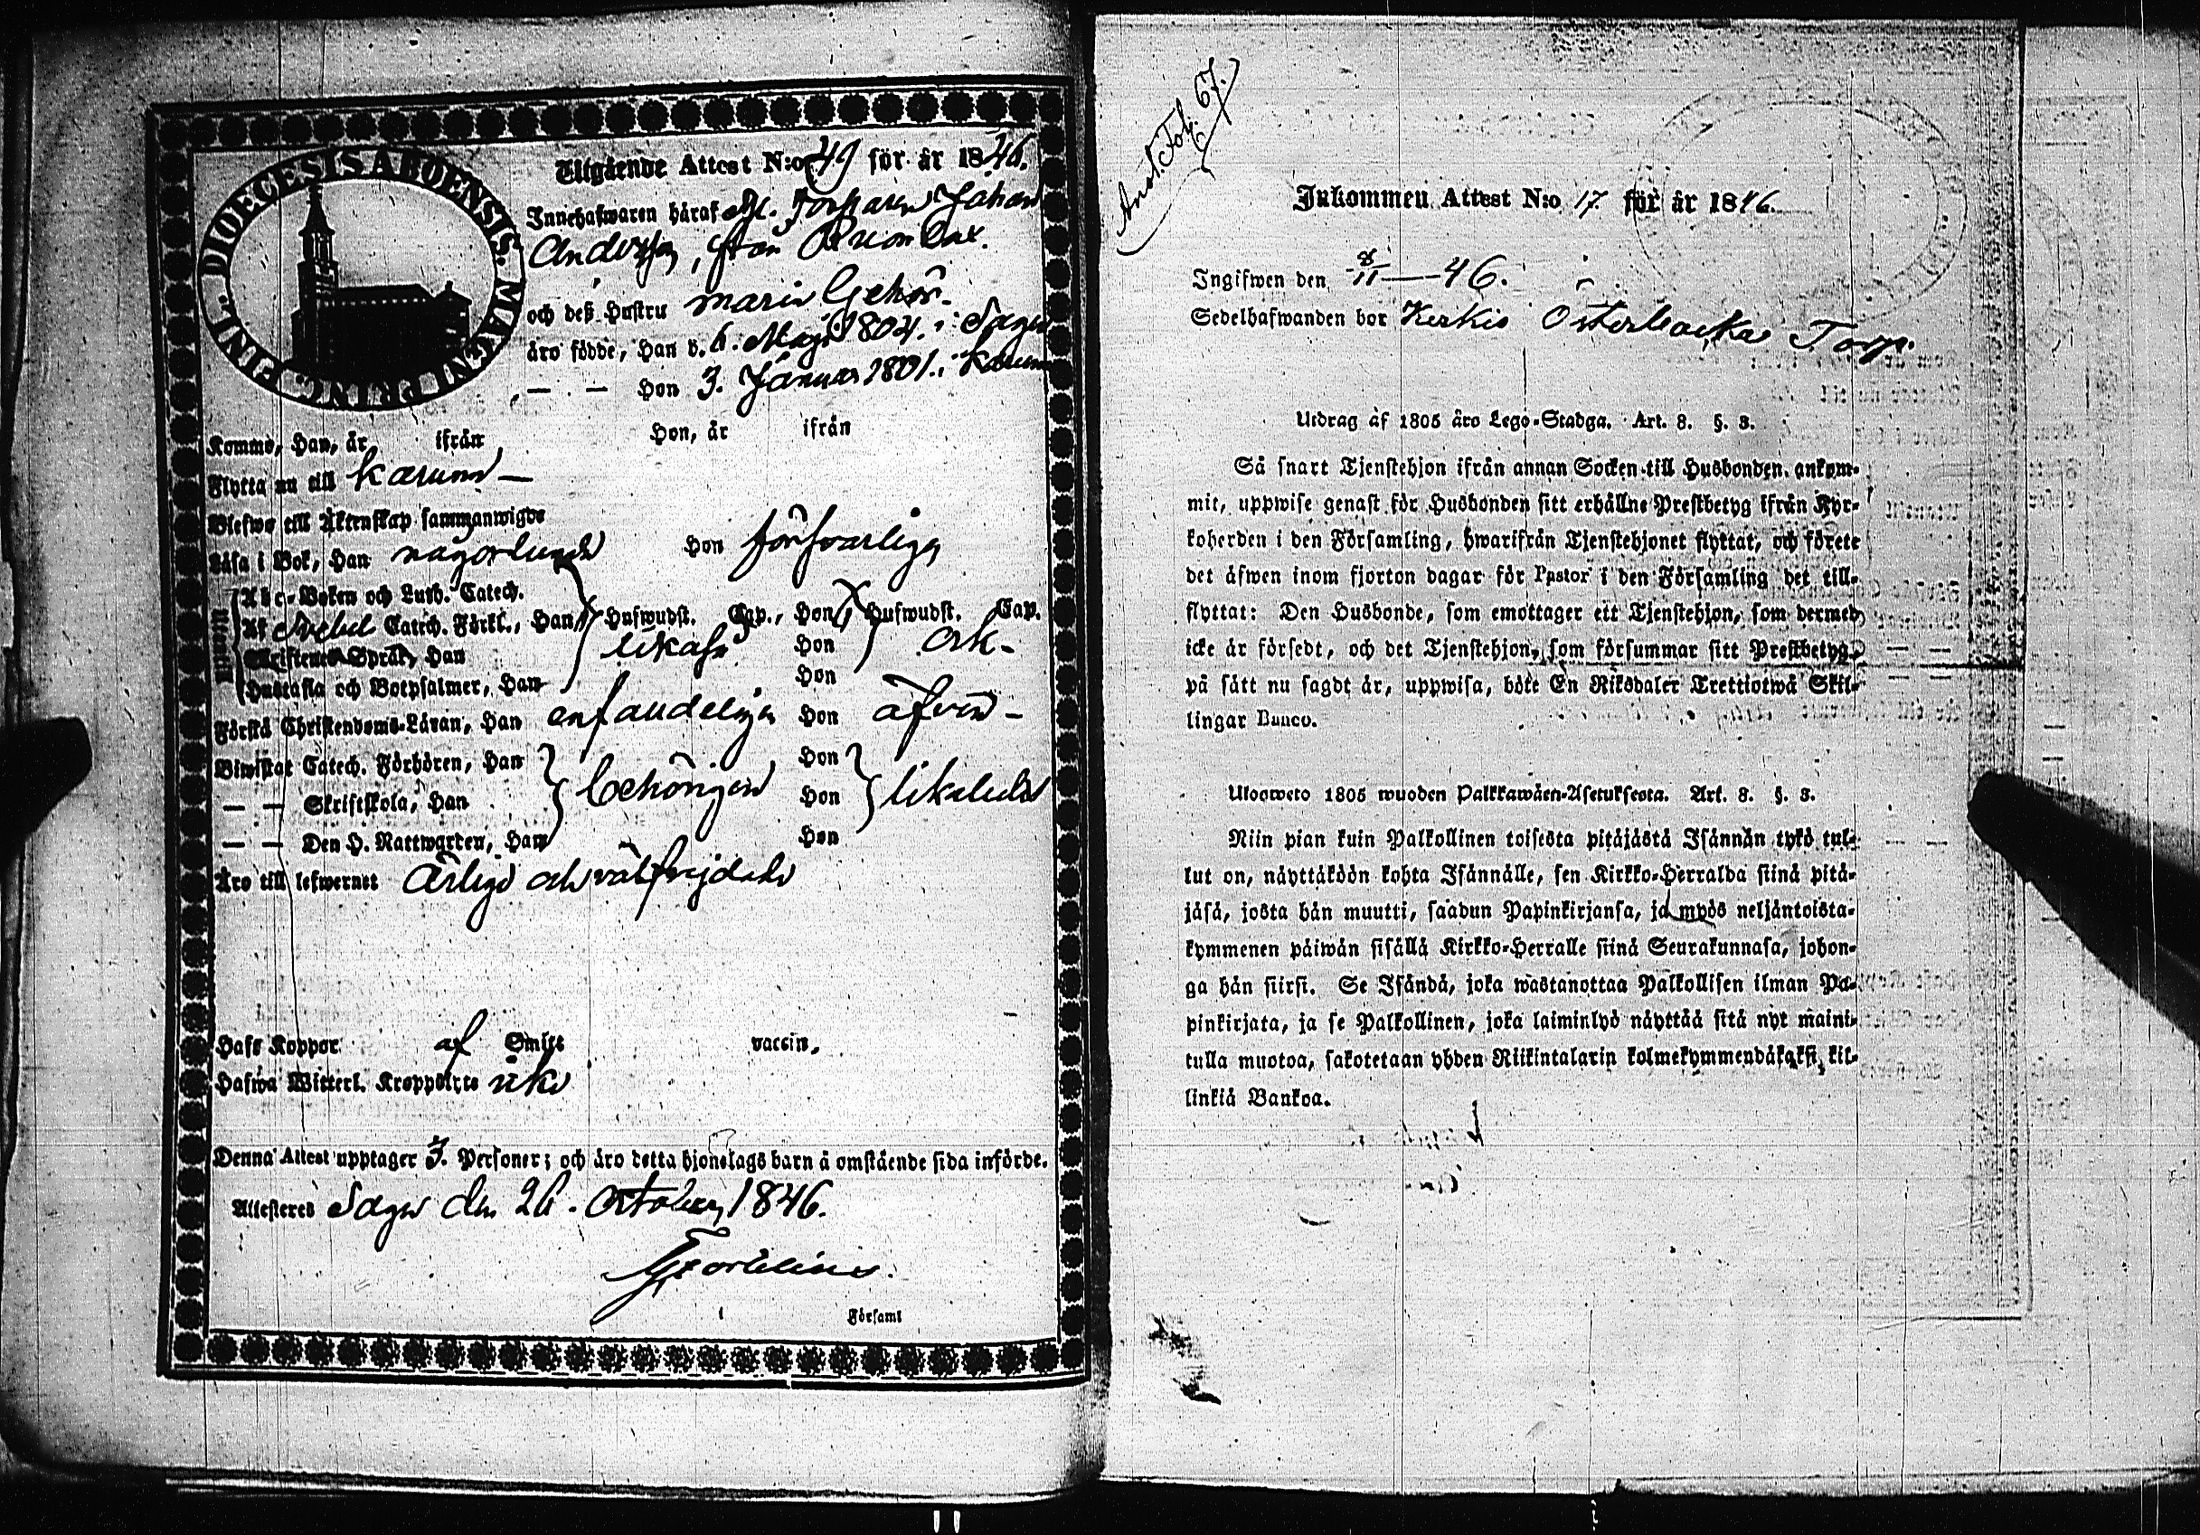 DIOECESIS ABOENSIS. MAGNI PRINC. FINL.
Utgående Attest N:o 49 för år 1846.
Innehafwaren häraf Torparen Johan
Anderss., från
och deß Hustru Maria
äro födde, Han d. 6. Maji 1804. i Sagu
— — Hon 3. Januar 1801. i Karuna
Komne, Han, år ifrån Hon, år ifrån
Flytta nu till Karuna —
Blefwo till Äktenskap sammanwigde
Läsa i Bok, Han någorlunda Hon försvarliga
Utantill
Abc-Boken och Luth. Catech.
Af Svebel. Catech. Förkl., Han Hufwudst. Cap., Hon Hufwudst. Cap.
Skriftenes Språk, Han likaså Hon ock -
Hustafla och Botpsalmer, Han Hon
Förstå Christendoms-Läran, Han enfaldeliga Hon äfven -
Biwistat Catech. Förhören, Han Hon
— — Skriftskola, Han behörigen Hon likaledes
— — Den H. Nattwarden, Han Hon
Äro till lefwernet Ärlige och välfrejdade
Haft Koppor af Smitt vaccin.
Hafwa Witterl. Kroppslyte icke
Denna Attest upptager 3. Personer; och äro detta hjonelags barn å omstående sida införde.
Attesteres Sagu den 26. October 1846.
Församl
Anot. Fol. 67.
Inkommen Attest N:o 17. för år 1846.
Ingifwen den 8/11 — 46.
Sedelhafwanden bor Kerkis Österbacka Torp.
Utdrag af 1805 års Lego-Stadga. Art. 8. §. 3.
Så snart Tjenstehjon ifrån annan Socken till Husbonden ankom-
mit, uppwise genast för Husbonden sitt erhållne Prestbetyg ifrån Kyr-
koherden i den Församling, hwarifrån Tjenstehjonet flyttat, och förete
det äfwen inom fjorton dagar för Pastor i den Församling det till-
flyttat: Den Husbonde, som emottager ett Tjenstehjon, som dermed
icke är försedt, och det Tjenstehjon, som försummar sitt Prestbetyg,
på sätt nu sagdt är, uppwisa, böte En Riksdaler Trettiotwå Skil-
lingar Banco.
Ulosweto 1805 wuoden Palkkawäen-Asetuksesta. Art. 8. §. 3.
Niin pian kuin Palkollinen toisesta pitäjästä Isännän tykö tul-
lut on, näyttäköön kohta Isännälle, sen Kirkko-Herralda siinä pitä-
jäsä, josta hän muutti, saadun Papinkirjansa, ja myös neljäntoista-
kymmenen päiwän sisällä Kirkko-Herralle siinä Seurakunnasa, johon-
ga hän siirsi. Se Isändä, joka wastanottaa Palkollisen ilman Pa-
pinkirjata, ja se Palkollinen, joka laiminlyö näyttää sitä nyt maini-
tulla muotoa, sakotetaan yhden Riikintalarin kolmekymmendäkaksi kil-
linkiä Bankoa.